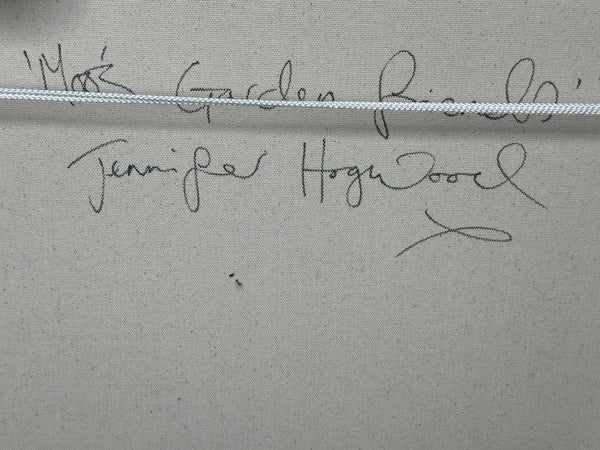 'Moo's Garden Friends'
Jennifer Hogwood
x